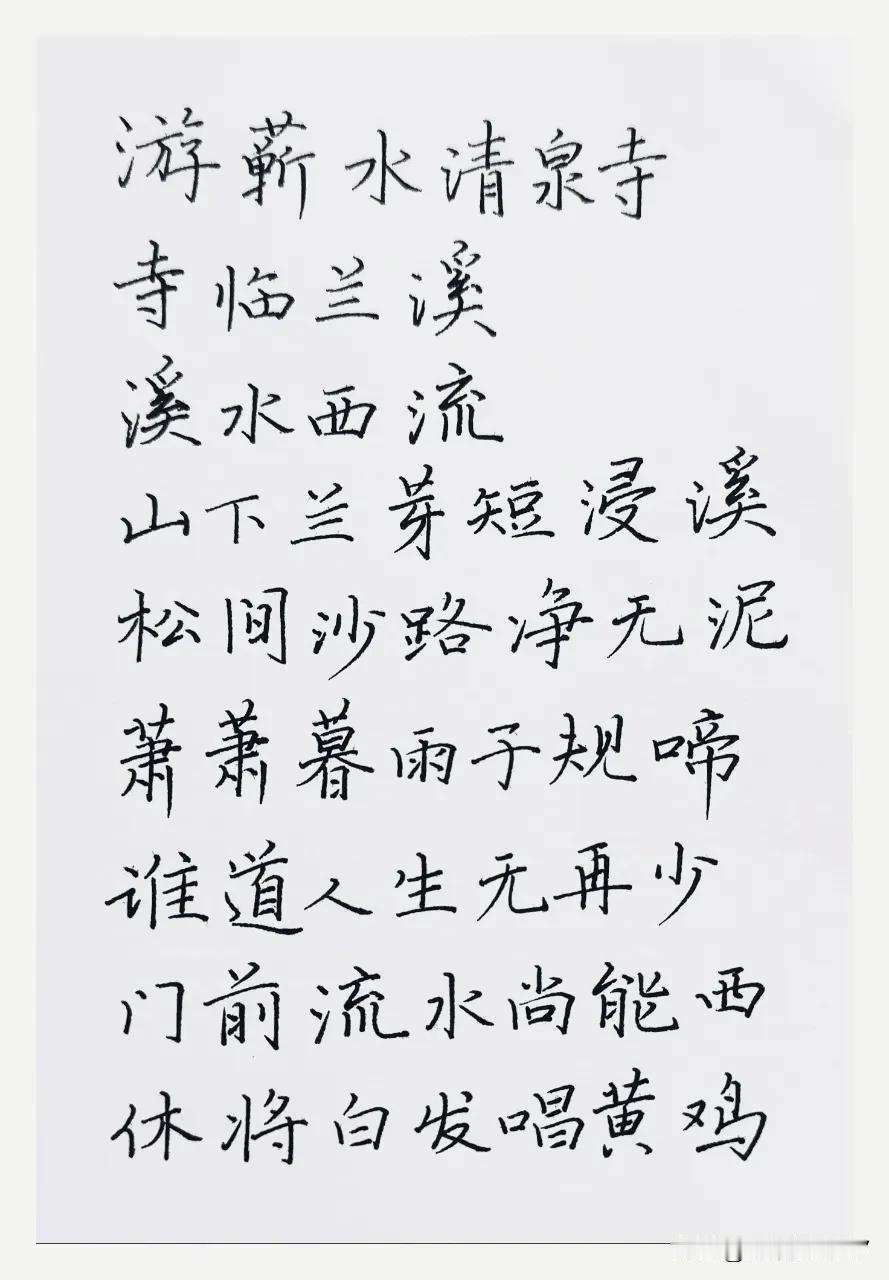 游蕲水清泉寺
寺临兰溪
溪水西流
山下兰芽短浸溪
松间沙路净无泥
萧萧暮雨子规啼
谁道人生无再少
门前流水尚能西
休将白发唱黄鸡